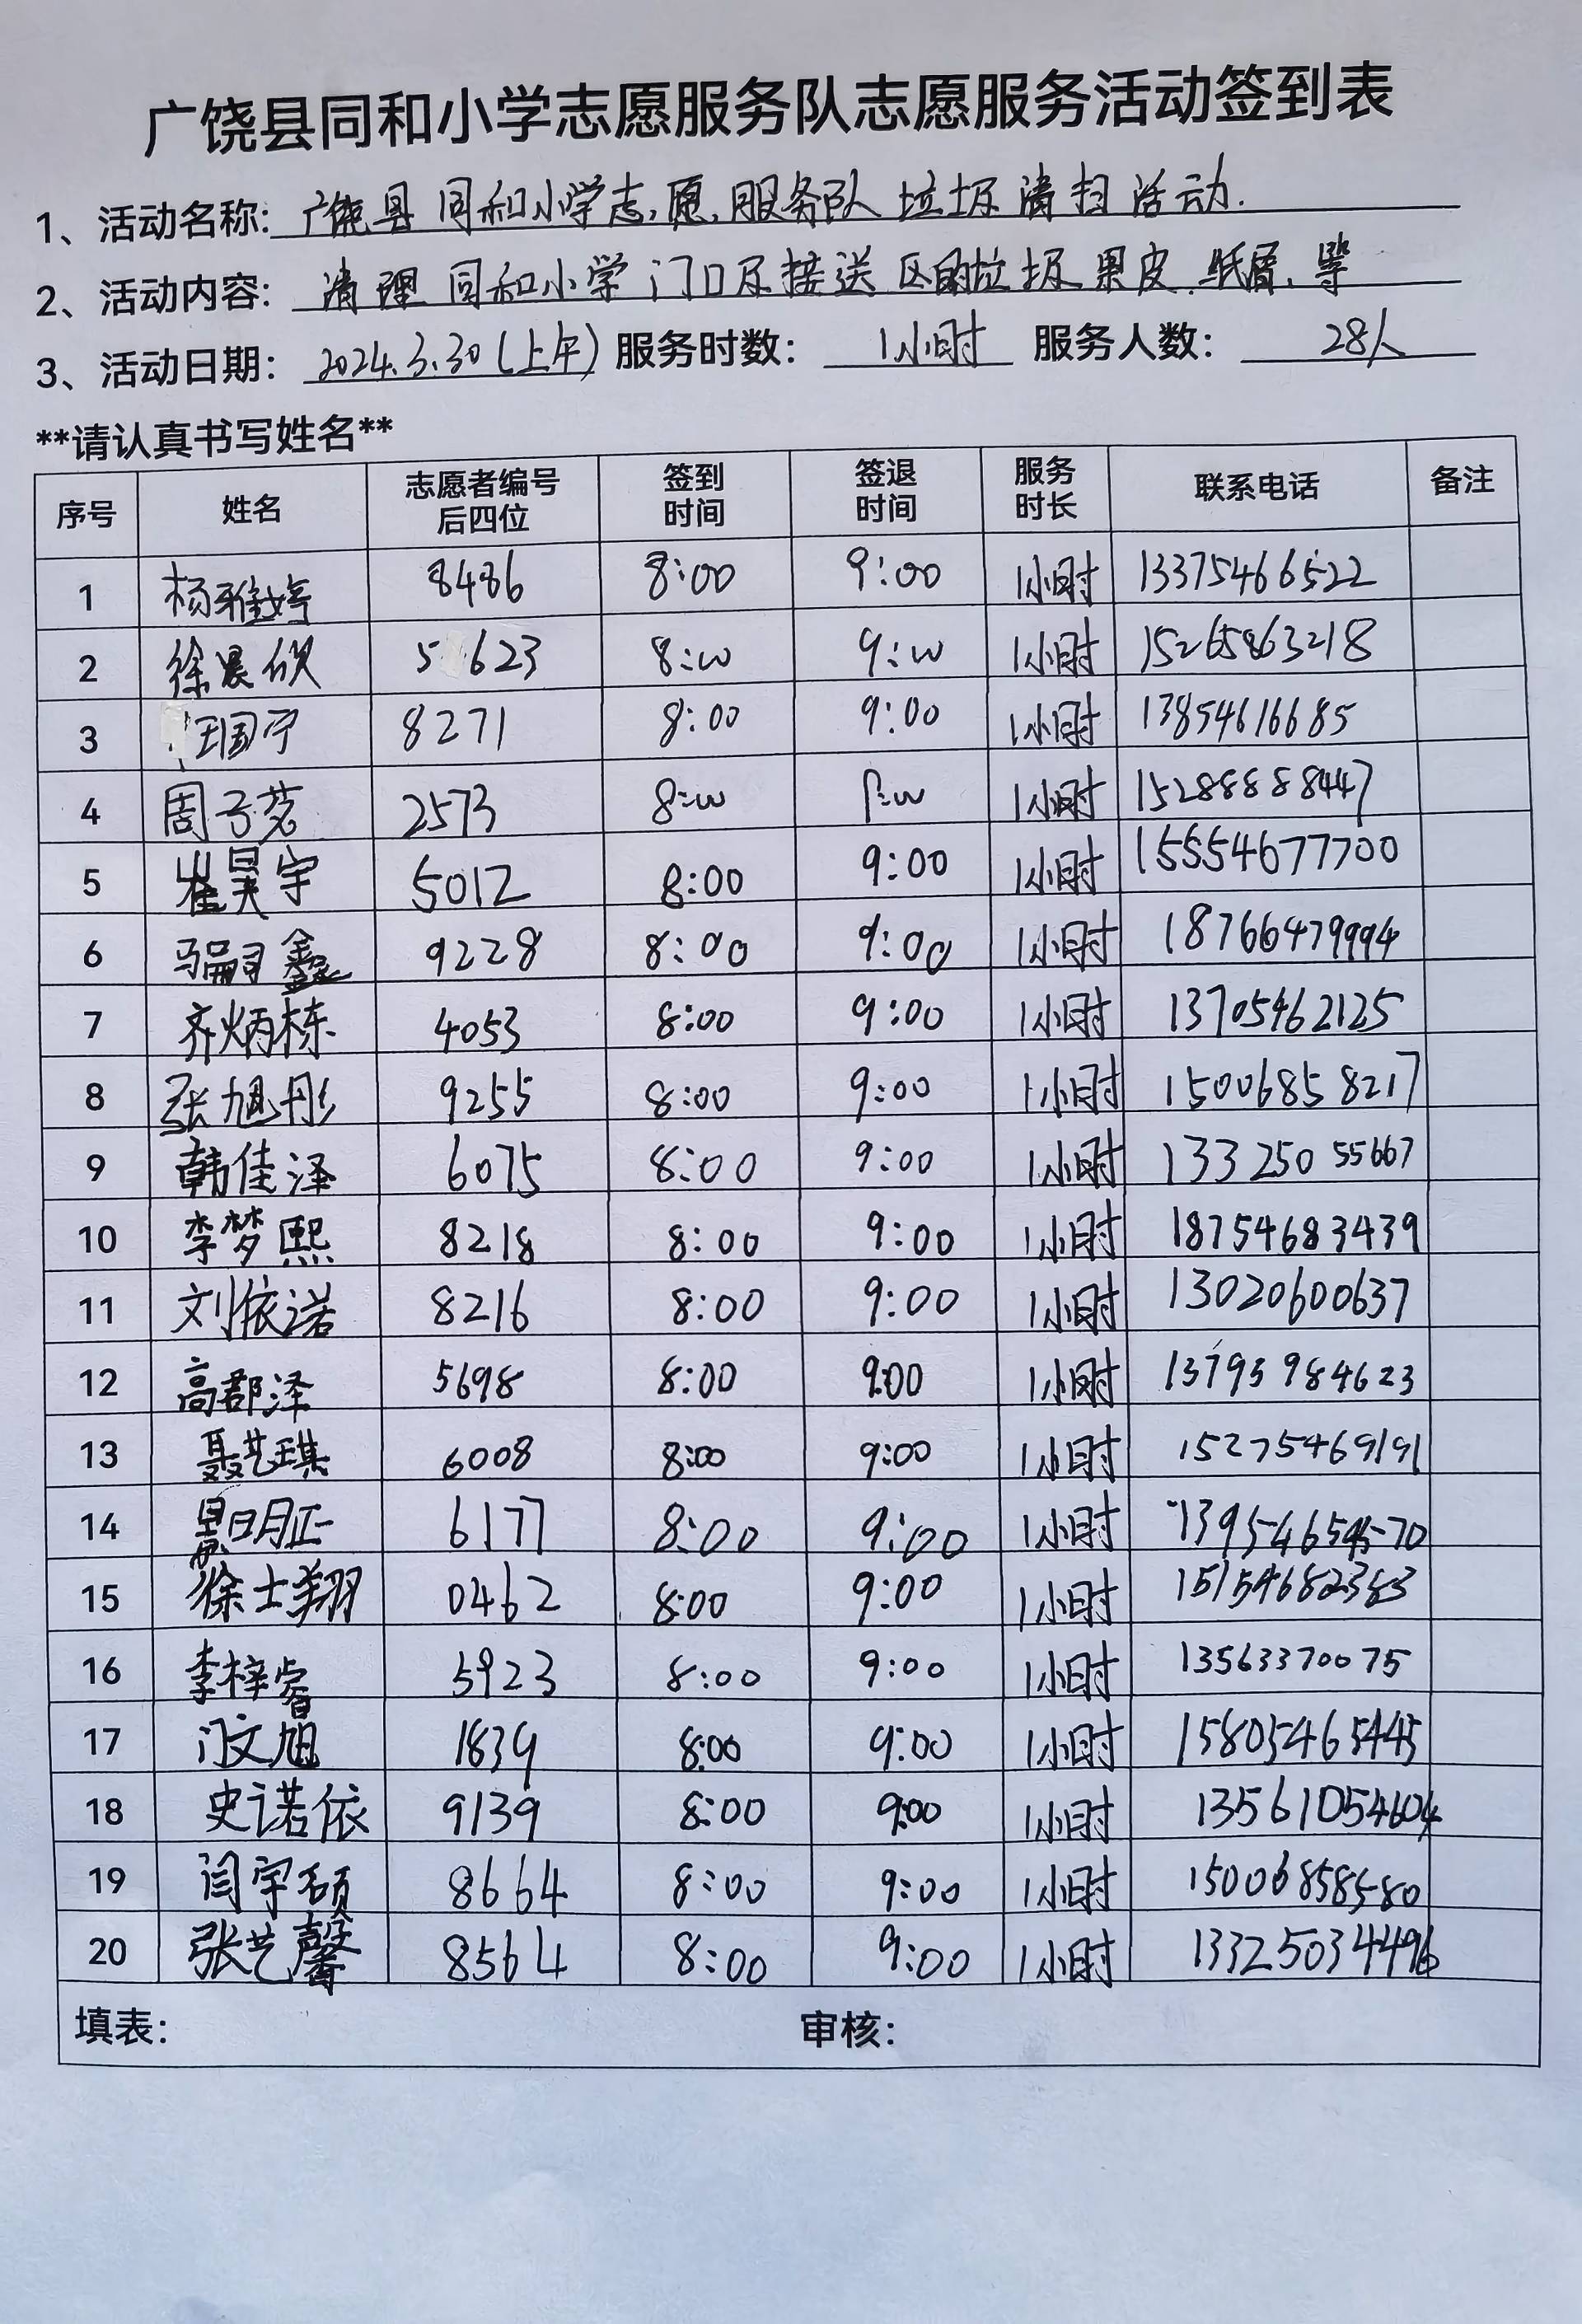 广饶县同和小学志愿服务队志愿服务活动签到表
1、活动名称: 广饶县同和小学志愿服务队垃圾清扫活动.
2、活动内容: 清理同和小学门口及接送区的垃圾果皮、纸屑、等
3、活动日期: 2024.3.30(上午) 服务时数: 1小时 服务人数: 28人
**请认真书写姓名**
序号 姓名 志愿者编号后四位 签到时间 签退时间 服务时长 联系电话 备注
1 杨雅婷 8486 8:00 9:00 1小时 13375466522
2 徐晨欣 5623 8:00 9:00 1小时 15265863218
3 国宁 8271 8:00 9:00 1小时 13854616685
4 周子茗 2573 8:00 9:00 1小时 15288888447
5 崔昊宇 5012 8:00 9:00 1小时 15554677700
6 骗鑫 9228 8:00 9:00 1小时 18766479994
7 齐炳栋 4053 8:00 9:00 1小时 13705462125
8 张旭彤 9255 8:00 9:00 1小时 15006858217
9 韩佳泽 6075 8:00 9:00 1小时 13325055667
10 李梦熙 8218 8:00 9:00 1小时 18754683439
11 刘依诺 8216 8:00 9:00 1小时 13020600637
12 高郡泽 5698 8:00 9:00 1小时 13793984623
13 聂艺琪 6008 8:00 9:00 1小时 15275469191
14 景明正 6177 8:00 9:00 1小时
15 徐士翔 0462 8:00 9:00 1小时 15154682383
16 李梓睿 5923 8:00 9:00 1小时 13563370075
17 门文旭 1839 8:00 9:00 1小时 15805465445
18 史诺依 9139 8:00 9:00 1小时 13561054604
19 闫宇硕 8664 8:00 9:00 1小时 15006858580
20 张艺馨 8564 8:00 9:00 1小时 13325034496
填表: 审核: